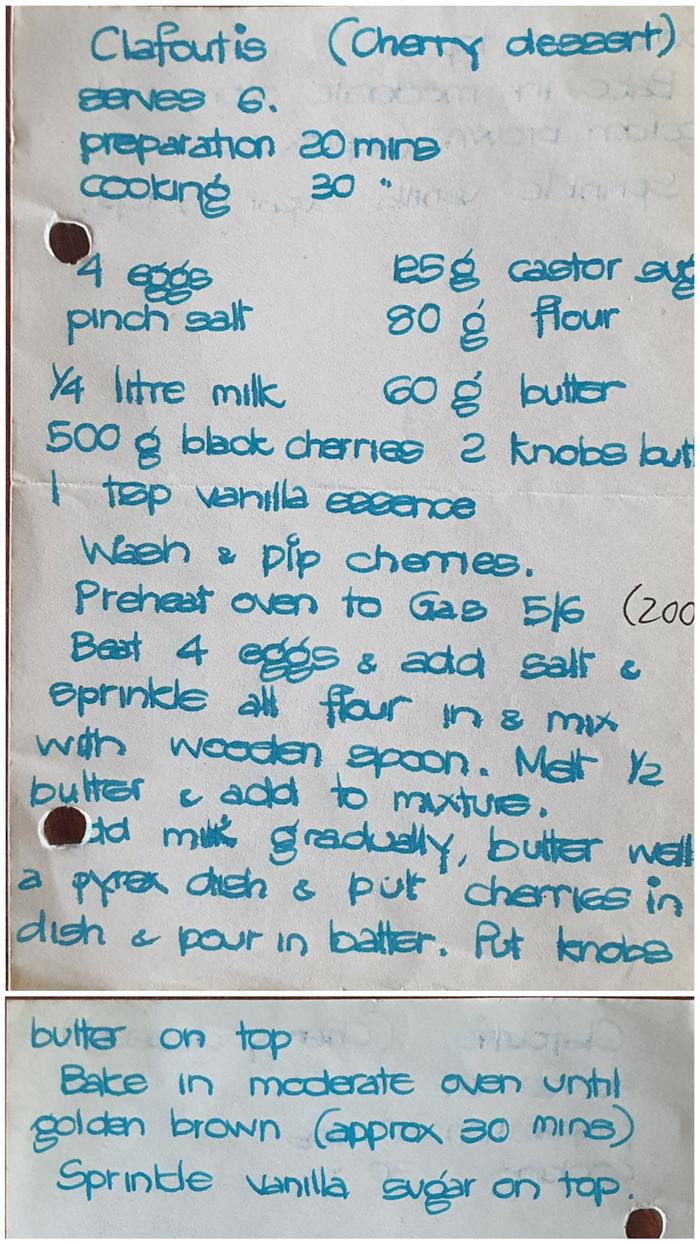 Clafoutis (Cherry dessert)
serves 6.
preparation 20 mins
cooking 30 "
4 eggs 125 g castor sug
pinch salt 80 g flour
1/4 litre milk 60 g butter
500 g black cherries 2 knobs butt
1 tsp vanilla essence
Wash & pip cherries.
Preheat oven to Gas 5/6 (200
Beat 4 eggs & add salt &
sprinkle all flour in & mix
with wooden spoon. Melt 1/2
butter & add to mixture.
dd milk gradually, butter well
a pyrex dish & put cherries in
dish & pour in batter. Put knobs
butter on top
Bake in moderate oven until
golden brown (approx 30 mins)
Sprinkle vanilla sugar on top.